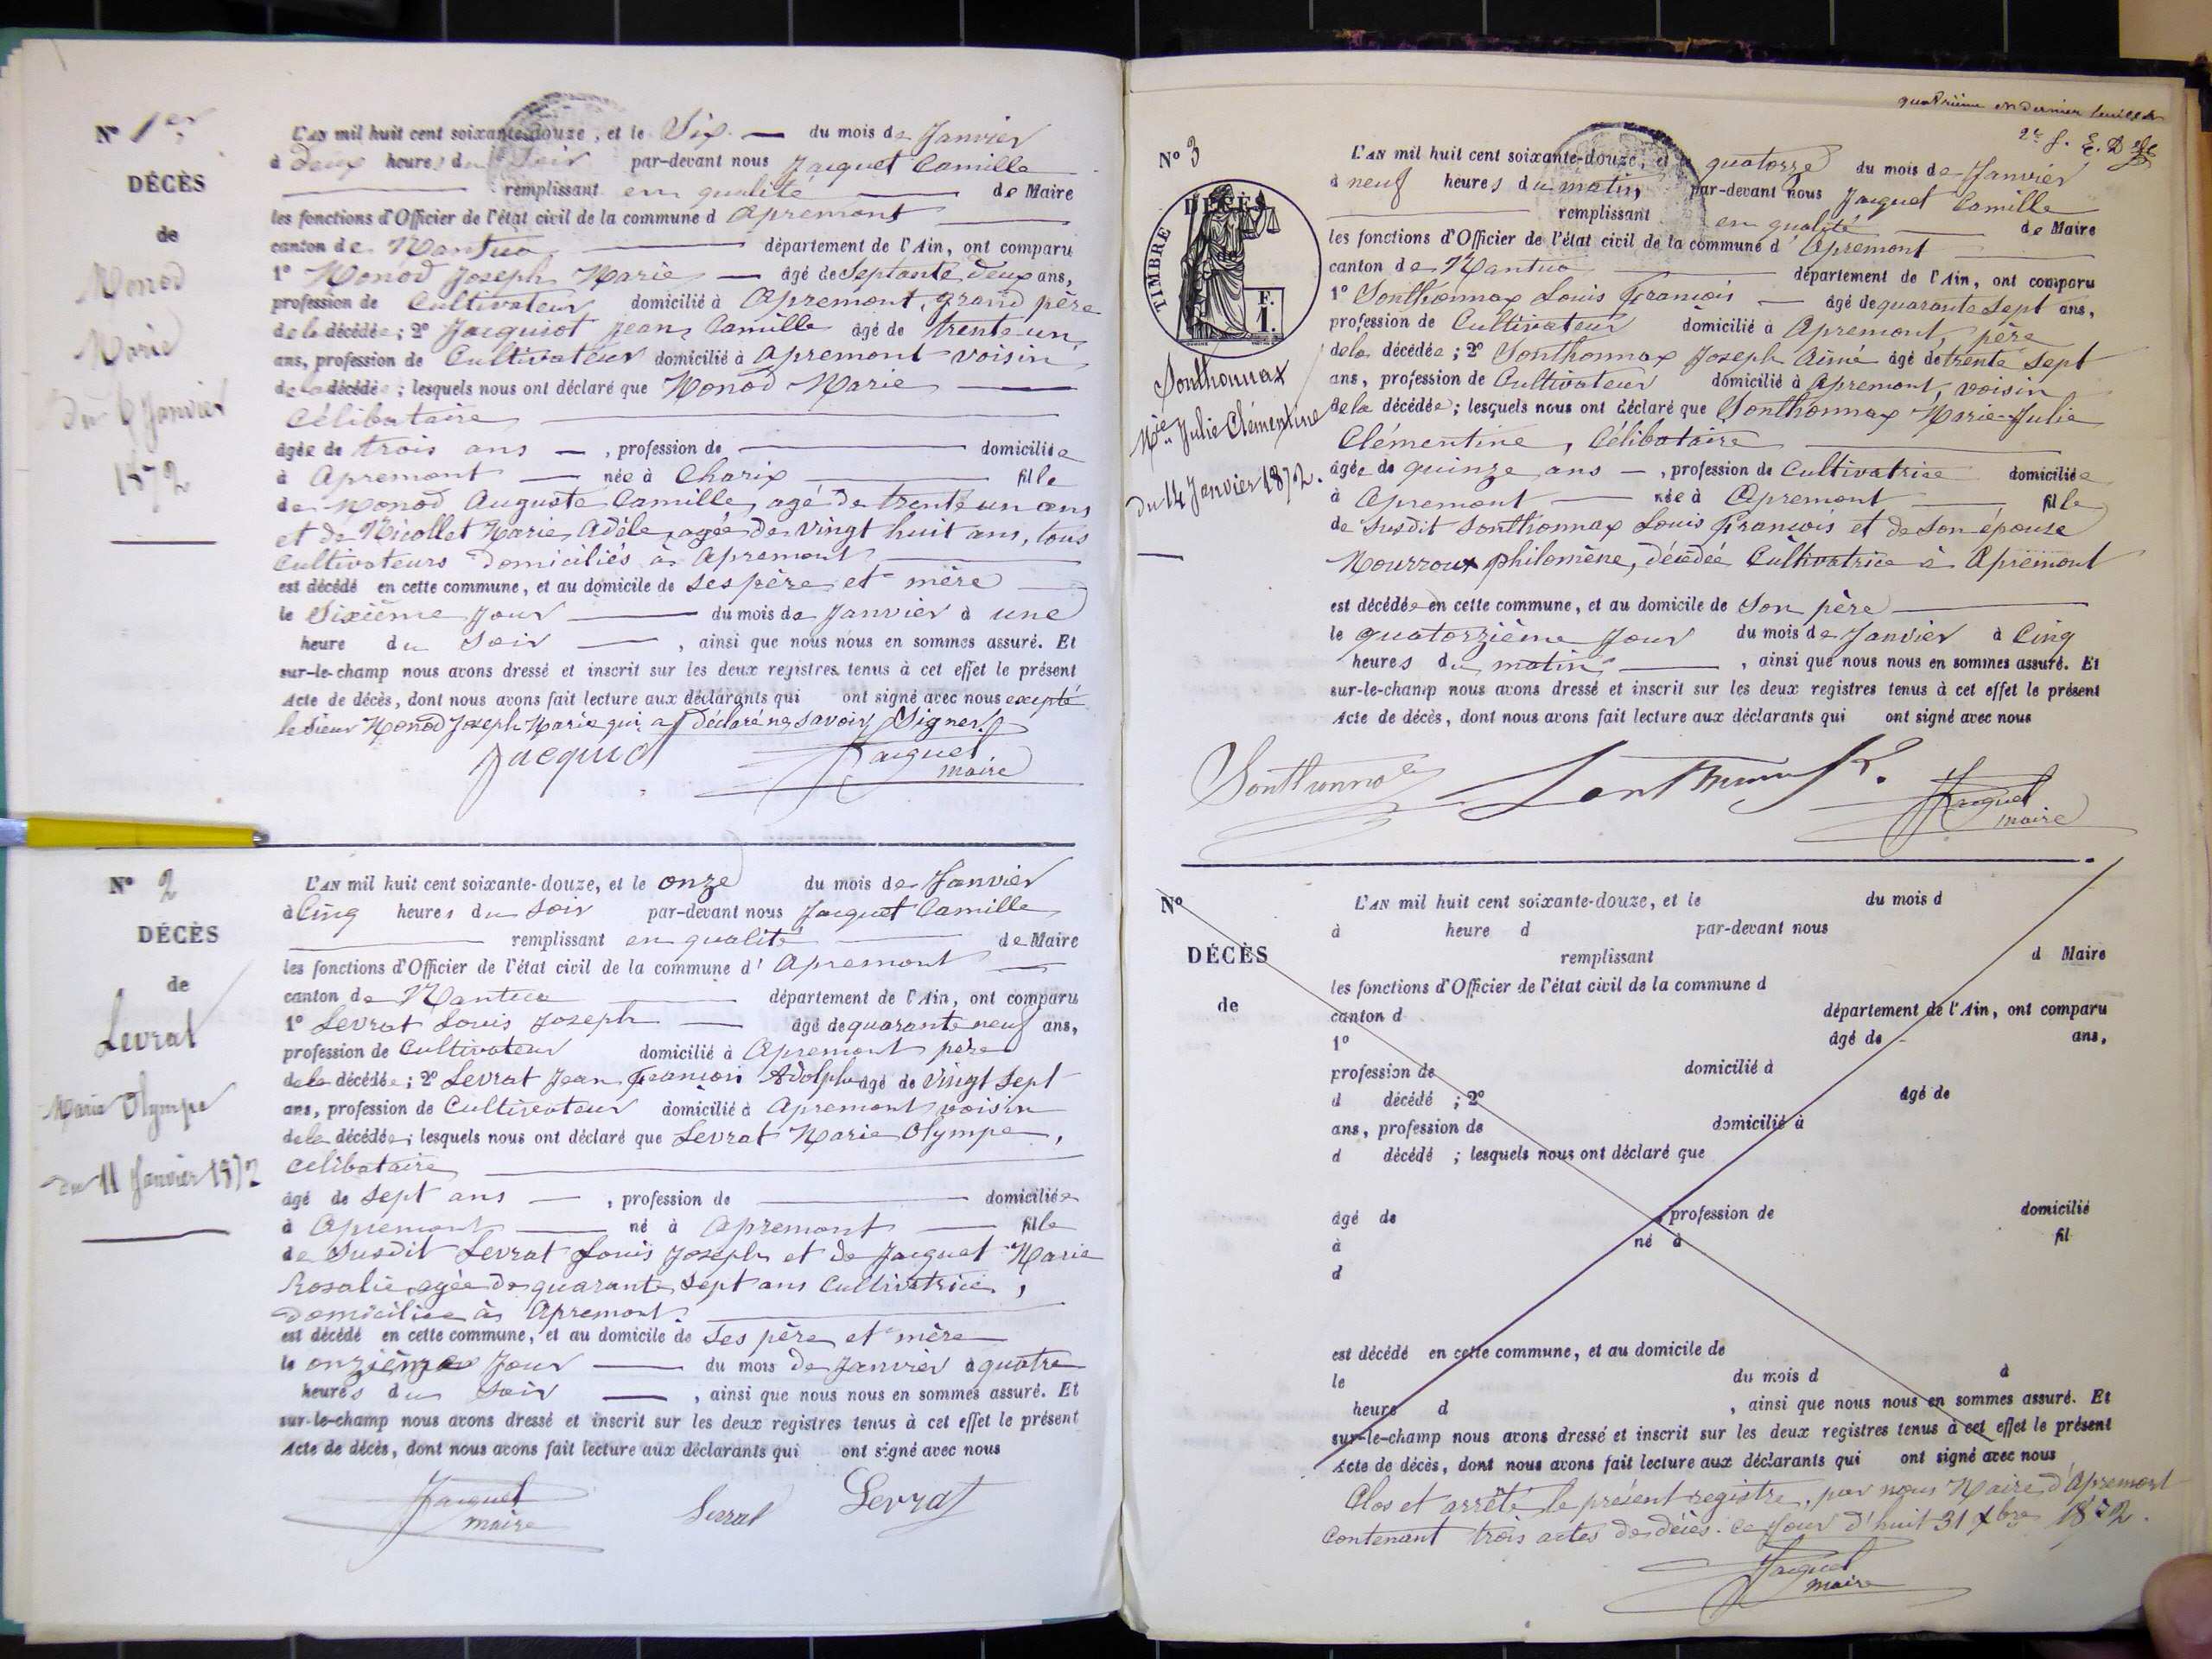 N° 1er
DÉCÈS
de
Monod
Marie
Du 6 Janvier
1872
L'AN mil huit cent soixante-douze, et le Six — du mois de Janvier
à deux heures du Soir par-devant nous Jacquet Camille
remplissant en qualité — de Maire
les fonctions d'Officier de l'état civil de la commune d Apremont
canton de Nantua — département de l'Ain, ont comparu
1° Monod Joseph Marie — âgé de Septante deux ans,
profession de Cultivateur domicilié à Apremont, grand père
de la décédée; 2° Jacquiot Jean Camille âgé de trente un
ans, profession de Cultivateur domicilié à Apremont voisin
de la décédée; lesquels nous ont déclaré que Monod Marie —
Célibataire
âgée de trois ans —, profession de — domiciliée
à Apremont — née à Charix — fille
de Monod Auguste Camille, agé de trente un ans
et de Nicollet Marie Adèle, agée de vingt huit ans, tous
Cultivateurs domiciliés à Apremont
est décédé en cette commune, et au domicile de Ses père et mère
le Sixième Jour — du mois de Janvier à une
heure du Soir —, ainsi que nous nous en sommes assuré. Et
sur-le-champ nous avons dressé et inscrit sur les deux registres tenus à cet effet le présent
Acte de décès, dont nous avons fait lecture aux déclarants qui ont signé avec nous excepté
le Sieur Monod Joseph Marie qui a déclaré ne savoir Signer.
Jacquiot Jacquet
maire
N° 2
DÉCÈS
de
Levrat
Marie Olympe
du 11 Janvier 1872
L'AN mil huit cent soixante-douze, et le onze du mois de Janvier
à Cinq heures du Soir par-devant nous Jacquet Camille
remplissant en qualité — de Maire
les fonctions d'Officier de l'état civil de la commune d' Apremont
canton de Nantua — département de l'Ain, ont comparu
1° Levrat Louis Joseph — âgé de quarante neuf ans,
profession de Cultivateur domicilié à Apremont père
de la décédée; 2° Levrat Jean François Adolphe âgé de vingt Sept
ans, profession de Cultivateur domicilié à Apremont voisin
de la décédée; lesquels nous ont déclaré que Levrat Marie Olympe,
Célibataire
âgé de Sept ans —, profession de — domiciliée
à Apremont — né à Apremont — fille
de Susdit Levrat Louis Joseph et de Jacquet Marie
Rosalie, agée de quarante Sept ans Cultivatrice,
domiciliée à Apremont.
est décédé en cette commune, et au domicile de Ses père et mère
le onzième Jour — du mois de Janvier à quatre
heures du Soir —, ainsi que nous nous en sommes assuré. Et
sur-le-champ nous avons dressé et inscrit sur les deux registres tenus à cet effet le présent
Acte de décès, dont nous avons fait lecture aux déclarants qui ont signé avec nous
Jacquet Levrat Levrat
maire
quatrième et dernier feuillet
N° 3
DÉCÈS
de
TIMBRE
F.
1.
Sonthonnax
Mie Julie Clémentine
du 14 Janvier 1872.
L'AN mil huit cent soixante-douze, et le quatorze du mois de Janvier
à neuf heures du matin, par-devant nous Jacquet Camille
remplissant en qualité — de Maire
les fonctions d'Officier de l'état civil de la commune d' Apremont
canton de Nantua — département de l'Ain, ont comparu
1° Sonthonnax Louis François — âgé de quarante Sept ans,
profession de Cultivateur domicilié à Apremont, père
de la décédée; 2° Sonthonnax Joseph Aimé âgé de trente Sept
ans, profession de Cultivateur domicilié à Apremont, voisin
de la décédée; lesquels nous ont déclaré que Sonthonnax Marie Julie
Clémentine, Célibataire
âgée de quinze ans —, profession de Cultivatrice domiciliée
à Apremont — née à Apremont — fille
de Susdit Sonthonnax Louis François et de Son épouse
Mourroux philomène, décédée Cultivatrice à Apremont
est décédée en cette commune, et au domicile de Son père
le quatorzième Jour du mois de Janvier à Cinq
heures du matin —, ainsi que nous nous en sommes assuré. Et
sur-le-champ nous avons dressé et inscrit sur les deux registres tenus à cet effet le présent
Acte de décès, dont nous avons fait lecture aux déclarants qui ont signé avec nous
Sonthonnax Jacquet
maire
N°
DÉCÈS
de
L'AN mil huit cent soixante-douze, et le du mois d
à heure d par-devant nous
remplissant d Maire
les fonctions d'Officier de l'état civil de la commune d
canton d département de l'Ain, ont comparu
1° âgé de ans,
profession de domicilié à
d décédé ; 2° âgé de
ans, profession de domicilié à
d décédé ; lesquels nous ont déclaré que
âgé de , profession de domicilié
à né à fil
d
est décédé en cette commune, et au domicile de
le du mois d à
heure d , ainsi que nous nous en sommes assuré. Et
sur-le-champ nous avons dressé et inscrit sur les deux registres tenus à cet effet le présent
Acte de décès, dont nous avons fait lecture aux déclarants qui ont signé avec nous
Clos et arrêté le présent registre, par nous Maire d'Apremont
Contenant trois actes de décès. Ce Jour d'huit 31 Xbre 1872.
Jacquet
maire